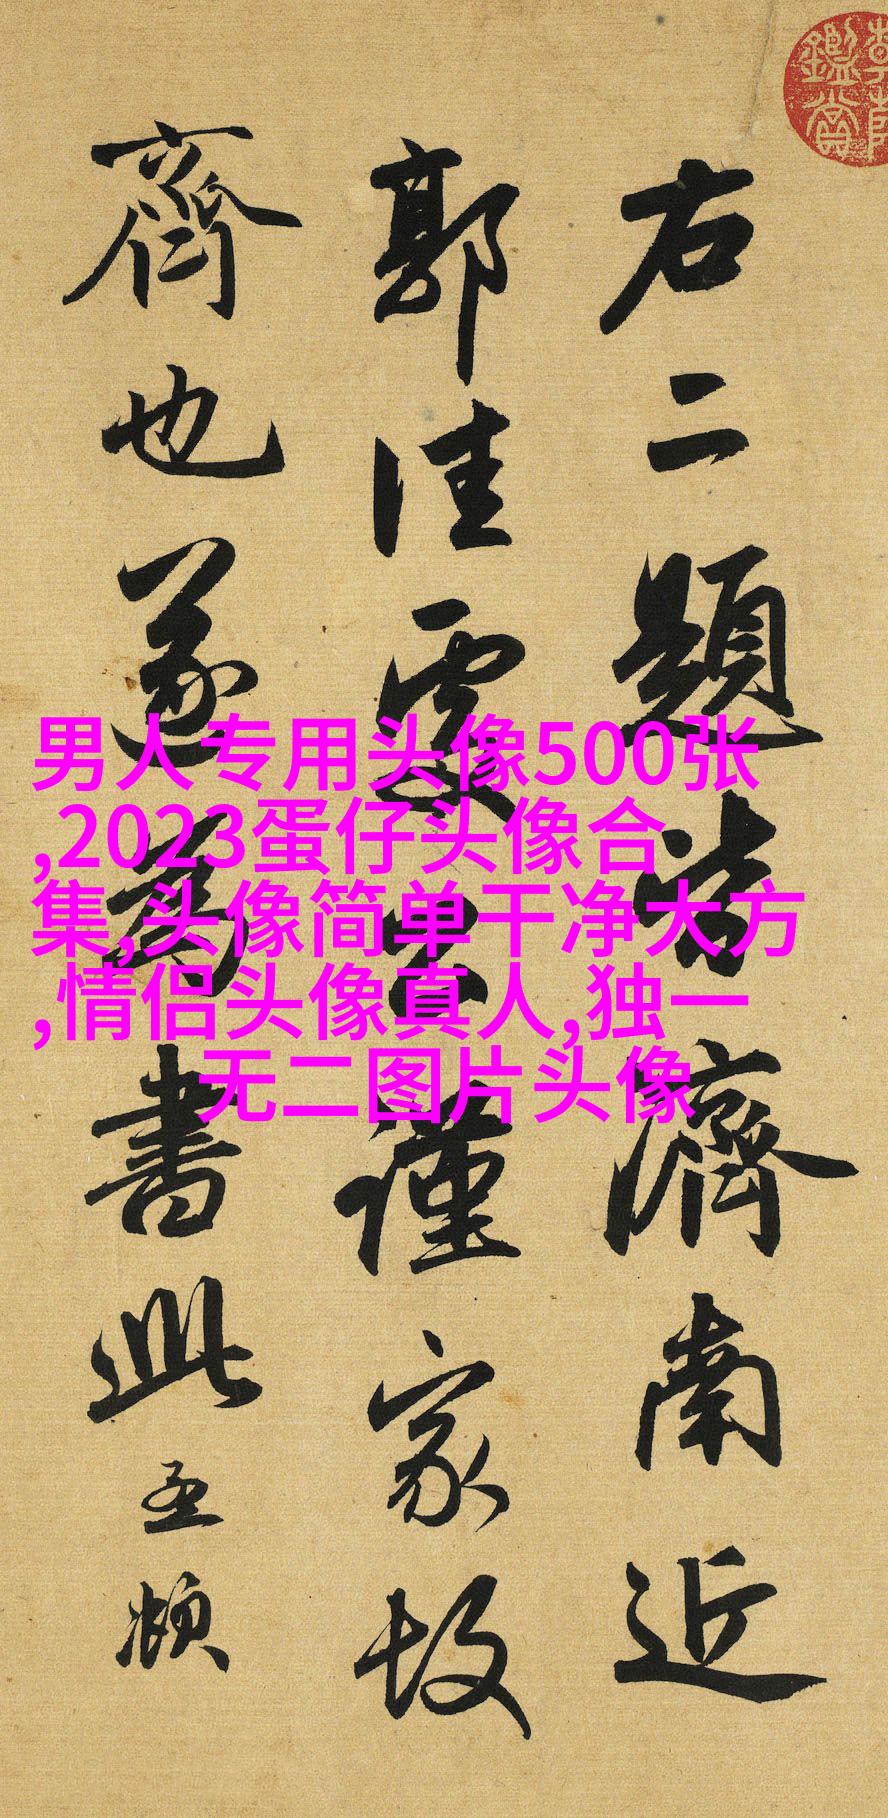 右二題皆濟南近
郭佳處公謹家故
齊也遂為書此孟頫
鑑賞
男人专用头像500张
,2023蛋仔头像合
集,头像简单干净大方
,情侣头像真人,独一
无二图片头像